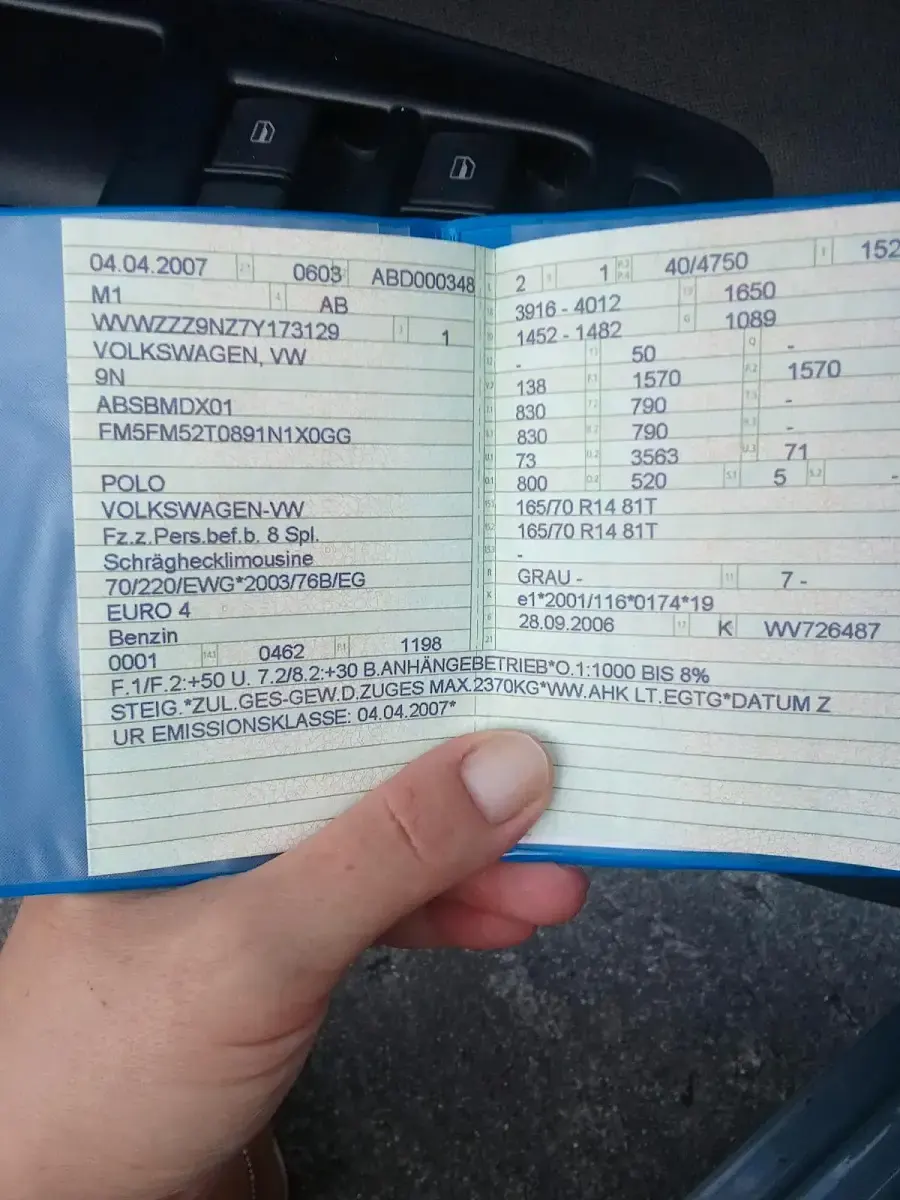 04.04.2007 2.1 0603 ABD000348
M1 4 AB
WVWZZZ9NZ7Y173129 3 1
VOLKSWAGEN, VW
9N
ABSBMDX01
FM5FM52T0891N1X0GG
POLO
VOLKSWAGEN-VW
Fz.z.Pers.bef.b. 8 Spl.
Schräghecklimousine
70/220/EWG*2003/76B/EG
EURO 4
Benzin
0001 14.1 0462 P.1 1198
L 2 9 1 P.2 P.4 40/4750 T 152
18 3916 - 4012 19 1650
20 1452 - 1482 G 1089
12 - 13 50 Q -
V.7 138 F.1 1570 F.2 1570
7.1 830 7.2 790 7.3 -
8.1 830 8.2 790 8.3 -
U.1 73 U.2 3563 U.3 71
O.1 800 O.2 520 S.1 5 S.2 -
15.1 165/70 R14 81T
15.2 165/70 R14 81T
15.3 -
R GRAU - 11 7 -
K e1*2001/116*0174*19
6 28.09.2006 17 K WV726487
21
F.1/F.2:+50 U. 7.2/8.2:+30 B.ANHÄNGEBETRIEB*O.1:1000 BIS 8%
STEIG.*ZUL.GES-GEW.D.ZUGES MAX.2370KG*WW.AHK LT.EGTG*DATUM Z
UR EMISSIONSKLASSE: 04.04.2007*